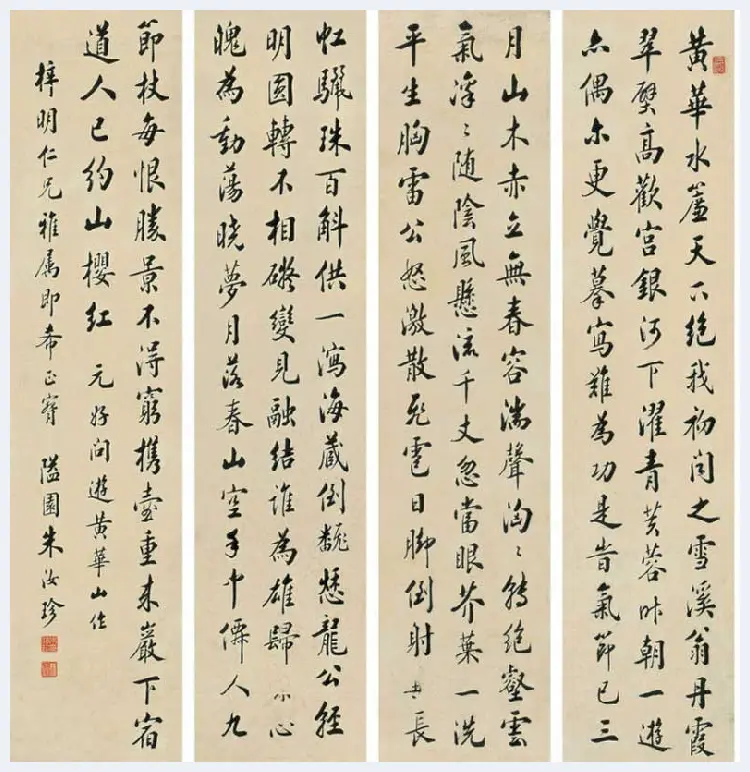 黃華水簾天下絕我初聞之雪溪翁丹霞
翠壁高歡宮銀河下濯青芙蓉昨朝一遊
亦偶尔更覺摹寫難為功是旹氣節已三
月山木赤立無春容湍聲洶〻轉絕壑雲
氣凛〻随陰風懸流千丈忽當眼芥葉一洗
平生胸雷公怒激散飛雹日脚倒射垂長
虹驪珠百斛供一瀉海藏倒翻愁龍公輕
明圓轉不相礙變見融結誰為雄歸来心
魄為動蕩曉夢月落春山空手中僊人九
節杖每恨勝景不得窮攜壺重来巖下宿
道人已約山櫻紅 元好問遊黃華山作
梓明仁兄雅属即希正 隘園朱汝珍